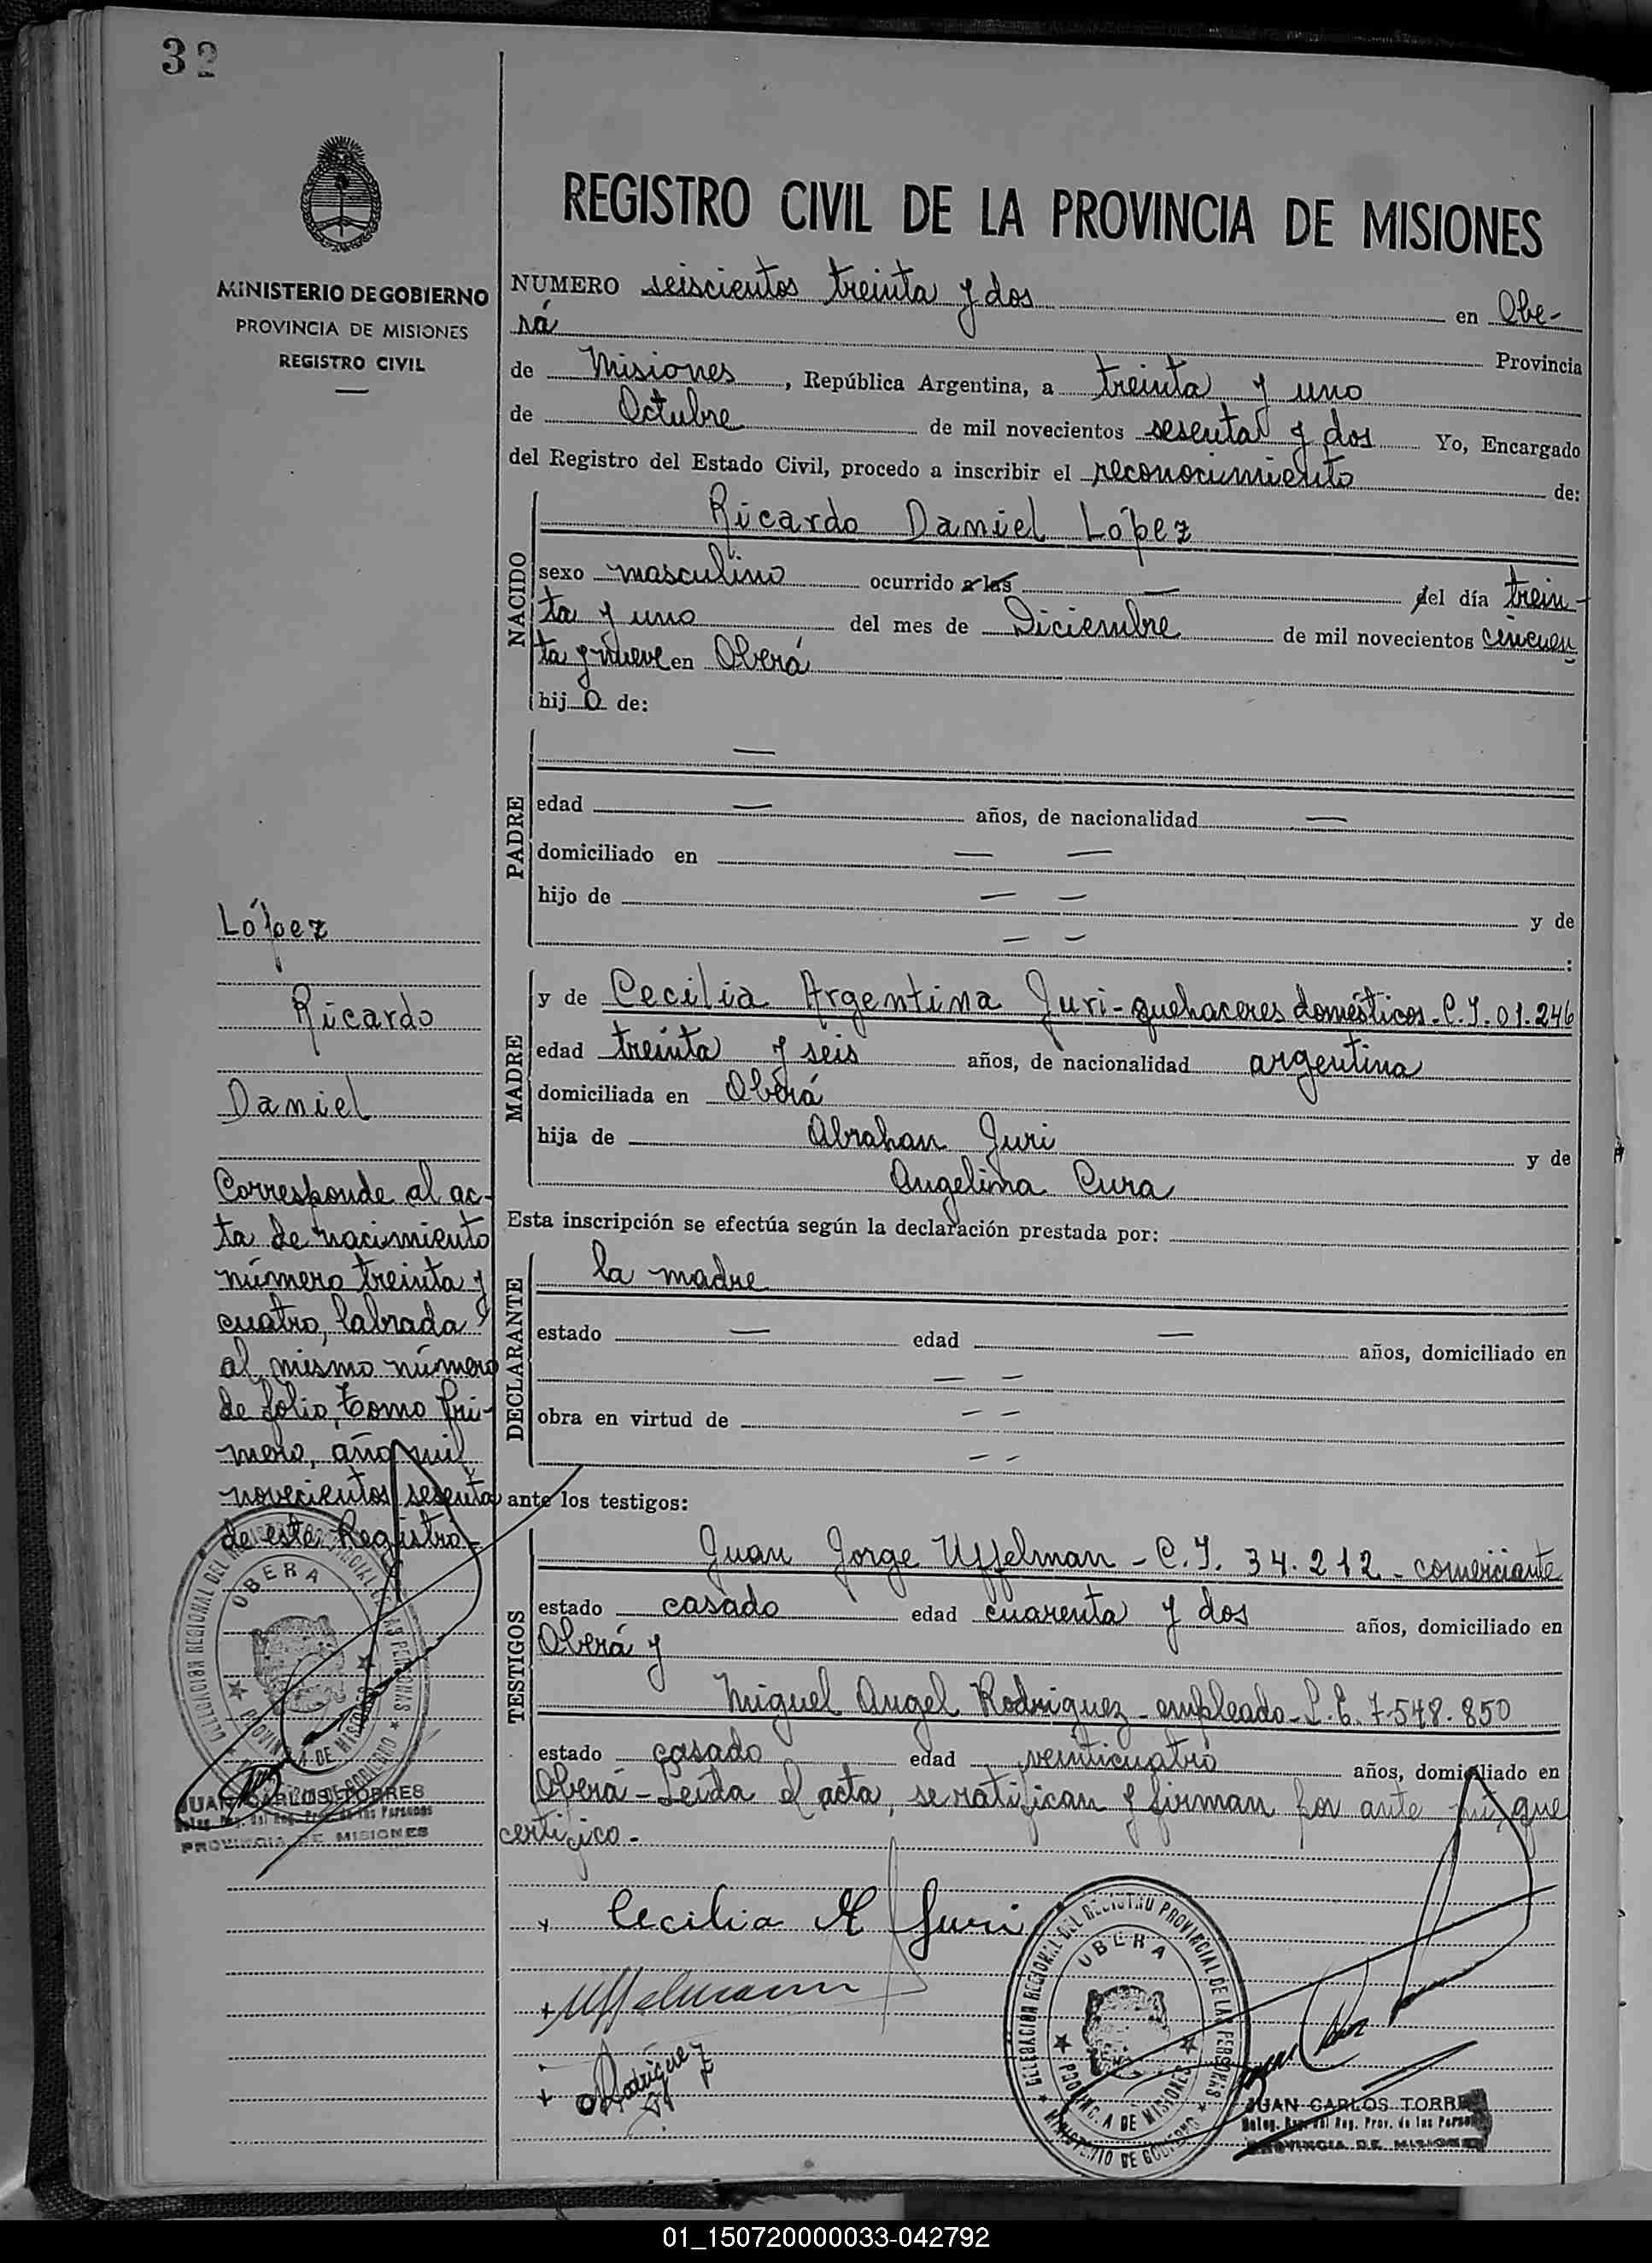 32
MINISTERIO DE GOBIERNO
PROVINCIA DE MISIONES
REGISTRO CIVIL
REGISTRO CIVIL DE LA PROVINCIA DE MISIONES
NUMERO seiscientos treinta y dos en Obe-
rá Provincia
de Misiones, República Argentina, a treinta y uno
de Octubre de mil novecientos sesenta y dos Yo, Encargado
del Registro del Estado Civil, procedo a inscribir el reconocimiento de:
NACIDO
Ricardo Daniel López
sexo masculino ocurrido a las — del día trein-
ta y uno del mes de Diciembre de mil novecientos cincuen
ta y nueve en Oberá
hijo de:
PADRE
—
edad — años, de nacionalidad —
domiciliado en — —
hijo de — — y de
— — :
MADRE
y de Cecilia Argentina Juri - quehaceres domésticos. C.I. 01.246
edad treinta y seis años, de nacionalidad argentina
domiciliada en Oberá
hija de Abrahan Juri y de
Angelina Cura
Esta inscripción se efectúa según la declaración prestada por:
DECLARANTE
la madre
estado — edad — años, domiciliado en
— —
obra en virtud de — —
— —
ante los testigos:
TESTIGOS
Juan Jorge Uffelman - C.I. 34.212 - comerciante
estado casado edad cuarenta y dos años, domiciliado en
Oberá y
Miguel Angel Rodriguez - empleado - L.E. 7.548.850
estado casado edad veinticuatro años, domiciliado en
Oberá - Leída el acta, se ratifican y firman por ante mí, que
certifico.-
López
Ricardo
Daniel
Corresponde al ac-
ta de nacimiento
número treinta y
cuatro, labrada
al mismo número
de folio, tomo pri-
mero, año mil
novecientos sesenta
de este Registro.-
DELEGACION REGIONAL DEL REGISTRO PROVINCIAL DE LAS PERSONAS
OBERA
PROVINCIA DE MISIONES
MINISTERIO DE GOBIERNO
JUAN CARLOS TORRES
Deleg. Reg. del Reg. Prov. de las Personas
PROVINCIA DE MISIONES
+ Cecilia A Juri
+ Uffelmann
+ Rodriguez
DELEGACION REGIONAL DEL REGISTRO PROVINCIAL DE LAS PERSONAS
OBERA
PROVINCIA DE MISIONES
MINISTERIO DE GOBIERNO
JUAN CARLOS TORRE
Deleg. Reg. del Reg. Prov. de las Person
PROVINCIA DE MISIONE
01_150720000033-042792